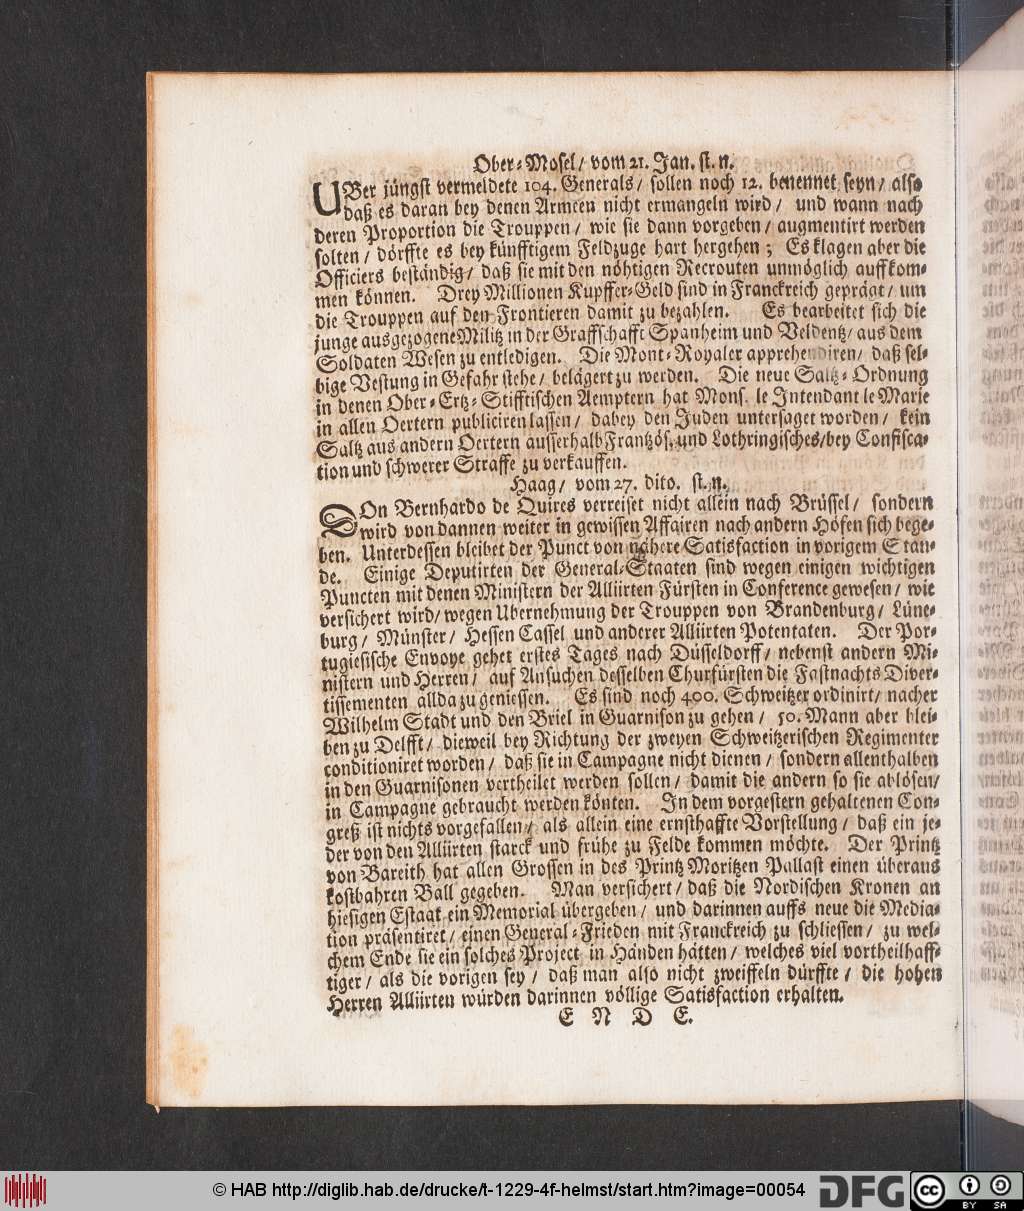 Ober-Mosel/ vom 21. Jan. st. n.
UBer jüngst vermeldete 104. Generals/ sollen noch 12. benennet seyn/ also
daß es daran bey denen Armeen nicht ermangeln wird/ und wann nach
deren Proportion die Trouppen/ wie sie dann vorgeben/ augmentirt werden
solten/ dörffte es bey künfftigem Feldzuge hart hergehen; Es klagen aber die
Officiers beständig/ daß sie mit den nöhtigen Recrouten unmöglich auffkom-
men können. Drey Millionen Kupffer-Geld sind in Franckreich geprägt/ um
die Trouppen auf den Frontieren damit zu bezahlen. Es bearbeitet sich die
junge ausgezogene Militz in der Graffschafft Spanheim und Veldentz/ aus dem
Soldaten Wesen zu entledigen. Die Mont-Royaler apprehendiren/ daß sel-
bige Vestung in Gefahr stehe/ belägert zu werden. Die neue Saltz-Ordnung
in denen Ober-Ertz-Stifftischen Aemptern hat Mons. le Intendant le Marie
in allen Oertern publiciren lassen/ dabey den Juden untersaget worden/ kein
Saltz aus andern Oertern ausserhalb Frantzös. und Lothringisches/ bey Confisca-
tion und schwerer Straffe zu verkauffen.
Haag/ vom 27. dito. st. n.
DOn Bernhardo de Quires verreiset nicht allein nach Brüssel/ sondern
wird von dannen weiter in gewissen Affairen nach andern Höfen sich bege-
ben. Unterdessen bleibet der Punct von nähere Satisfaction in vorigem Stan-
de. Einige Deputirten der General-Staaten sind wegen einigen wichtigen
Puncten mit denen Ministern der Alliirten Fürsten in Conference gewesen/ wie
versichert wird/ wegen Ubernehmung der Trouppen von Brandenburg/ Lüne-
burg/ Münster/ Hessen Cassel und anderer Alliirten Potentaten. Der Por-
tugiesische Envoye gehet erstes Tages nach Düsseldorff/ nebenst andern Mi-
nistern und Herren/ auf Ansuchen desselben Churfürsten die Fastnachts Diver-
tissementen allda zu geniessen. Es sind noch 400. Schweitzer ordinirt/ nacher
Wilhelm Stadt und den Briel in Guarnison zu gehen/ 50. Mann aber blei-
ben zu Delfft/ dieweil bey Richtung der zweyen Schweitzerischen Regimenter
conditioniret worden/ daß sie in Campagne nicht dienen/ sondern allenthalben
in den Guarnisonen vertheilet werden sollen/ damit die andern so sie ablösen/
in Campagne gebraucht werden könten. In dem vorgestern gehaltenen Con-
greß ist nichts vorgefallen/ als allein eine ernsthaffte Vorstellung/ daß ein je-
der von den Alliirten starck und frühe zu Felde kommen möchte. Der Printz
von Bareith hat allen Grossen in des Printz Moritzen Pallast einen überaus
kostbahren Ball gegeben. Man versichert/ daß die Nordischen Kronen an
hiesigen Estaat ein Memorial übergeben/ und darinnen auffs neue die Media-
tion präsentiret/ einen General-Frieden mit Franckreich zu schliessen/ zu wel-
chem Ende sie ein solches Project in Händen hätten/ welches viel vortheilhaff-
tiger/ als die vorigen sey/ daß man also nicht zweiffeln dürffte/ die hohen
Herren Alliirten würden darinnen völlige Satisfaction erhalten.
E N D E.
© HAB http://diglib.hab.de/drucke/t-1229-4f-helmst/start.htm?image=00054
DFG
cc BY SA